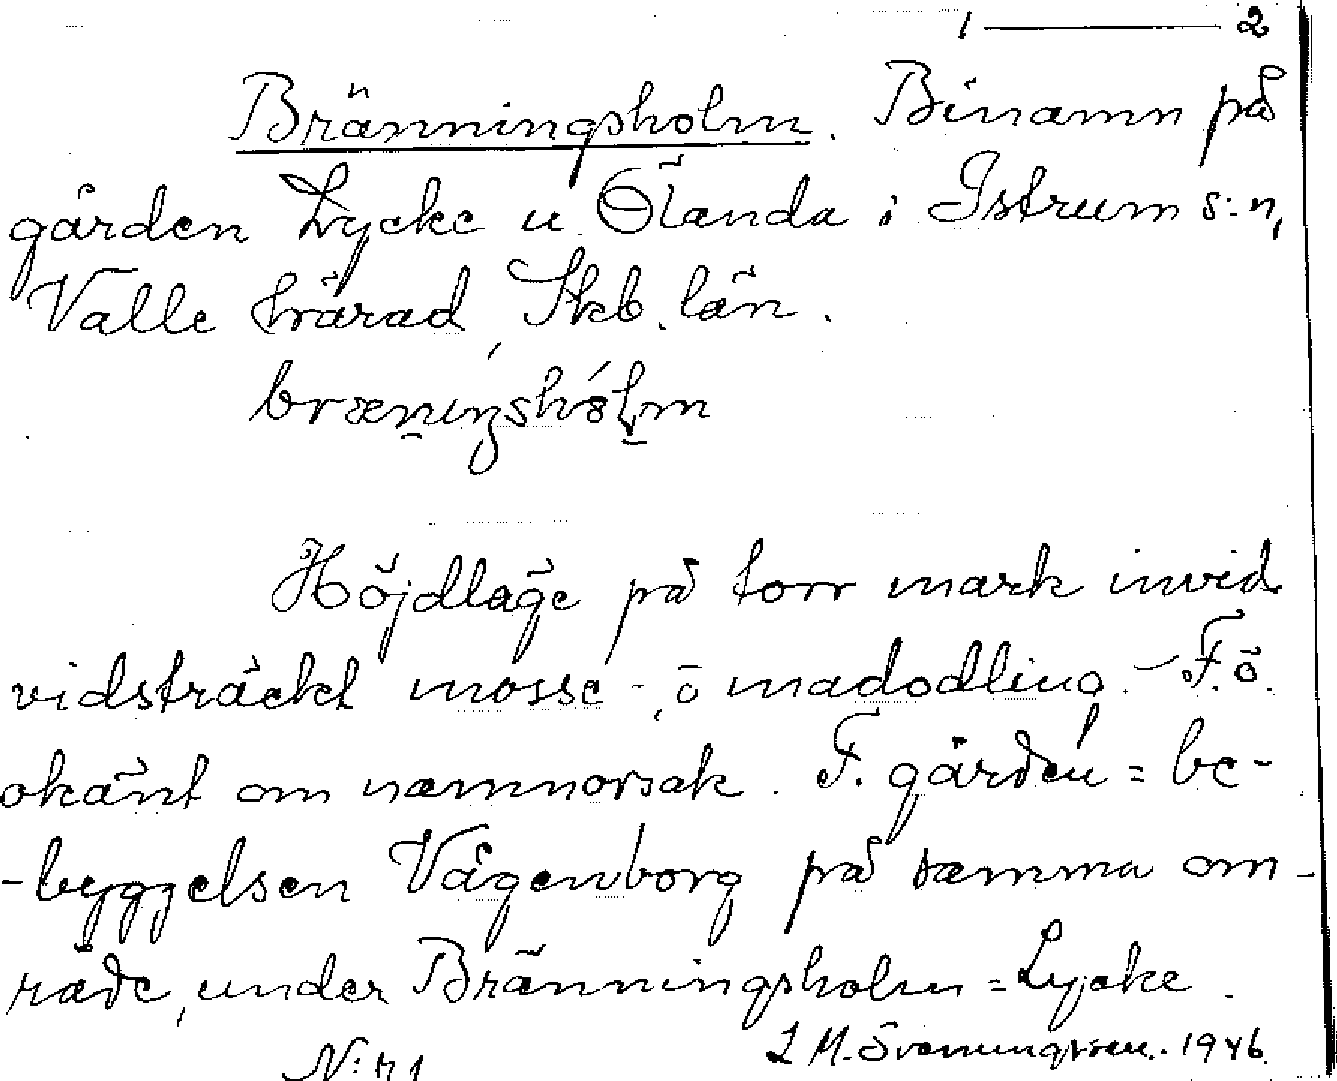 1 — 2
Bränningsholm. Binamn på
gården Lycke u Ölanda i Istrum s:n,
Valle härad, Skb. län.
Höjdläge på torr mark invid
vidsträckt mosse-, o madodling. - F. ö.
okänt om namnorsak. F. gården = be-
-byggelsen Vågenborg på samma om-
råde, under Bränningsholm = Lycke.
L M. Svenungsson. 1946.